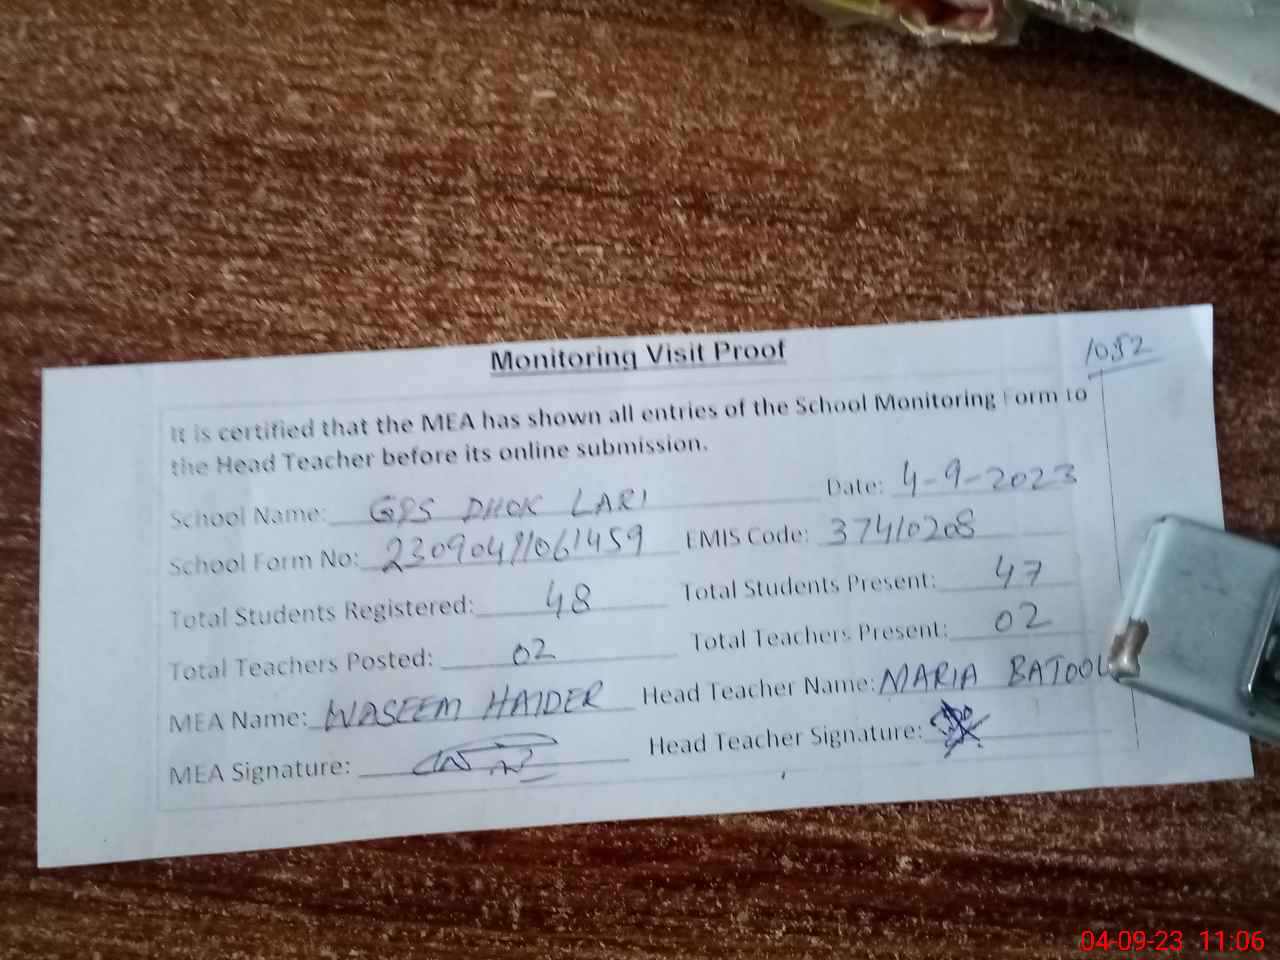 Monitoring Visit Proof
1052
It is certified that the MEA has shown all entries of the School Monitoring Form to
the Head Teacher before its online submission.
School Name: GPS DHOK LARI Date: 4-9-2023
School Form No: 23090491061459 EMIS Code: 37410208
Total Students Registered: 48 Total Students Present: 47
Total Teachers Posted: 02 Total Teachers Present: 02
MEA Name: WASEEM HAIDER Head Teacher Name: MARIA BATOOL
MEA Signature: Head Teacher Signature:
04-09-23 11:06